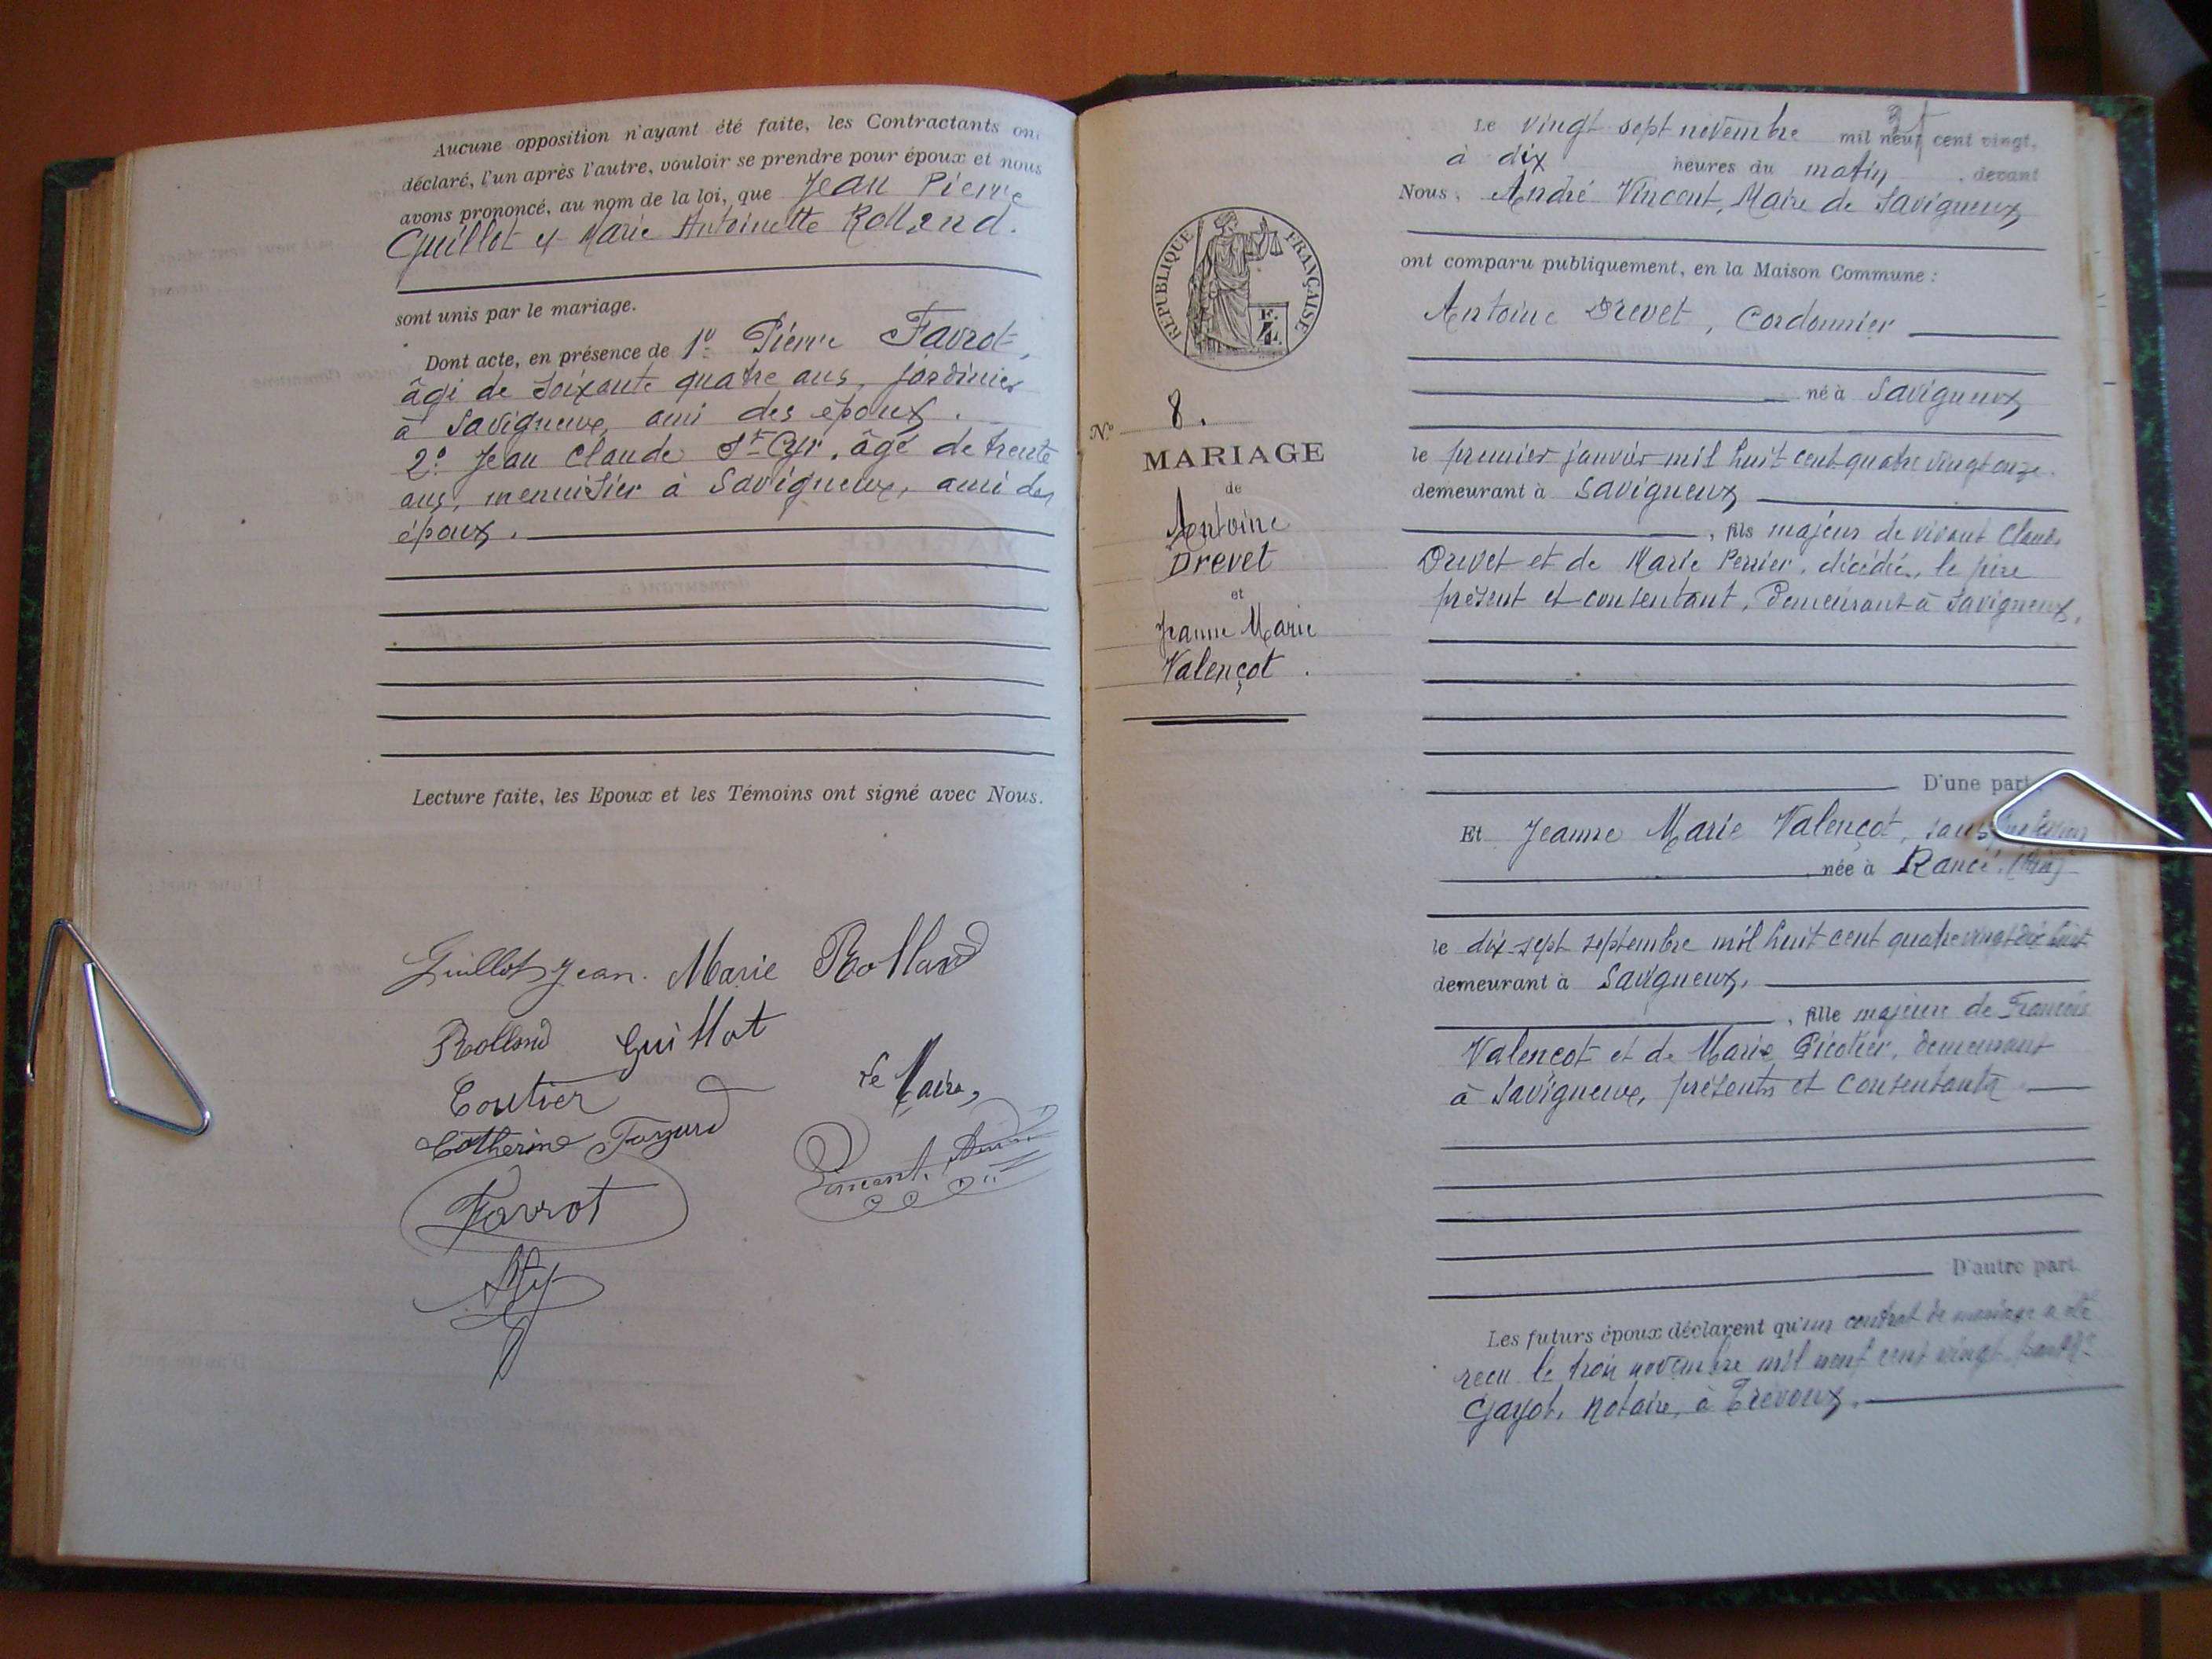 Aucune opposition n'ayant été faite, les Contractants ont
déclaré, l'un après l'autre, vouloir se prendre pour époux et nous
avons prononcé, au nom de la loi, que Jean Pierre
Guillot et Marie Antoinette Rolland.
sont unis par le mariage.
Dont acte, en présence de 1º Pierre Favrot,
âgé de soixante quatre ans, jardinier
à Savigneux, ami des époux.
2º Jean Claude St Cyr, âgé de trente
ans, menuisier à Savigneux, ami des
époux.
Lecture faite, les Epoux et les Témoins ont signé avec Nous.
Guillot Jean. Marie Rolland
Rolland Guillot
Coutier
Le Maire,
Catherine
Vincent André
Favrot
REPUBLIQUE FRANÇAISE
Nº 8.
MARIAGE
de
Antoine
Drevet
et
Jeanne Marie
Valençot.
Le vingt sept novembre mil neuf cent vingt,
à dix heures du matin, devant
Nous, André Vincent, Maire de Savigneux
ont comparu publiquement, en la Maison Commune :
Antoine Drevet, Cordonnier
né à Savigneux
le premier janvier mil huit cent quatre vingt onze.
demeurant à Savigneux
, fils majeur de vivant Claude
Drevet et de Marie Perrier, décédée, le père
présent et consentant, demeurant à Savigneux.
D'une part
Et Jeanne Marie Valençot, sans profession
née à Rancé, (Ain)
le dix-sept septembre mil huit cent quatre vingt dix huit
demeurant à Savigneux,
, fille majeure de François
Valençot et de Marie demeurant
à Savigneux, présents et consentants
D'autre part.
Les futurs époux déclarent qu'un contrat de mariage a été
reçu le trois novembre mil neuf cent vingt par Me
Gayot, Notaire, à Trévoux.